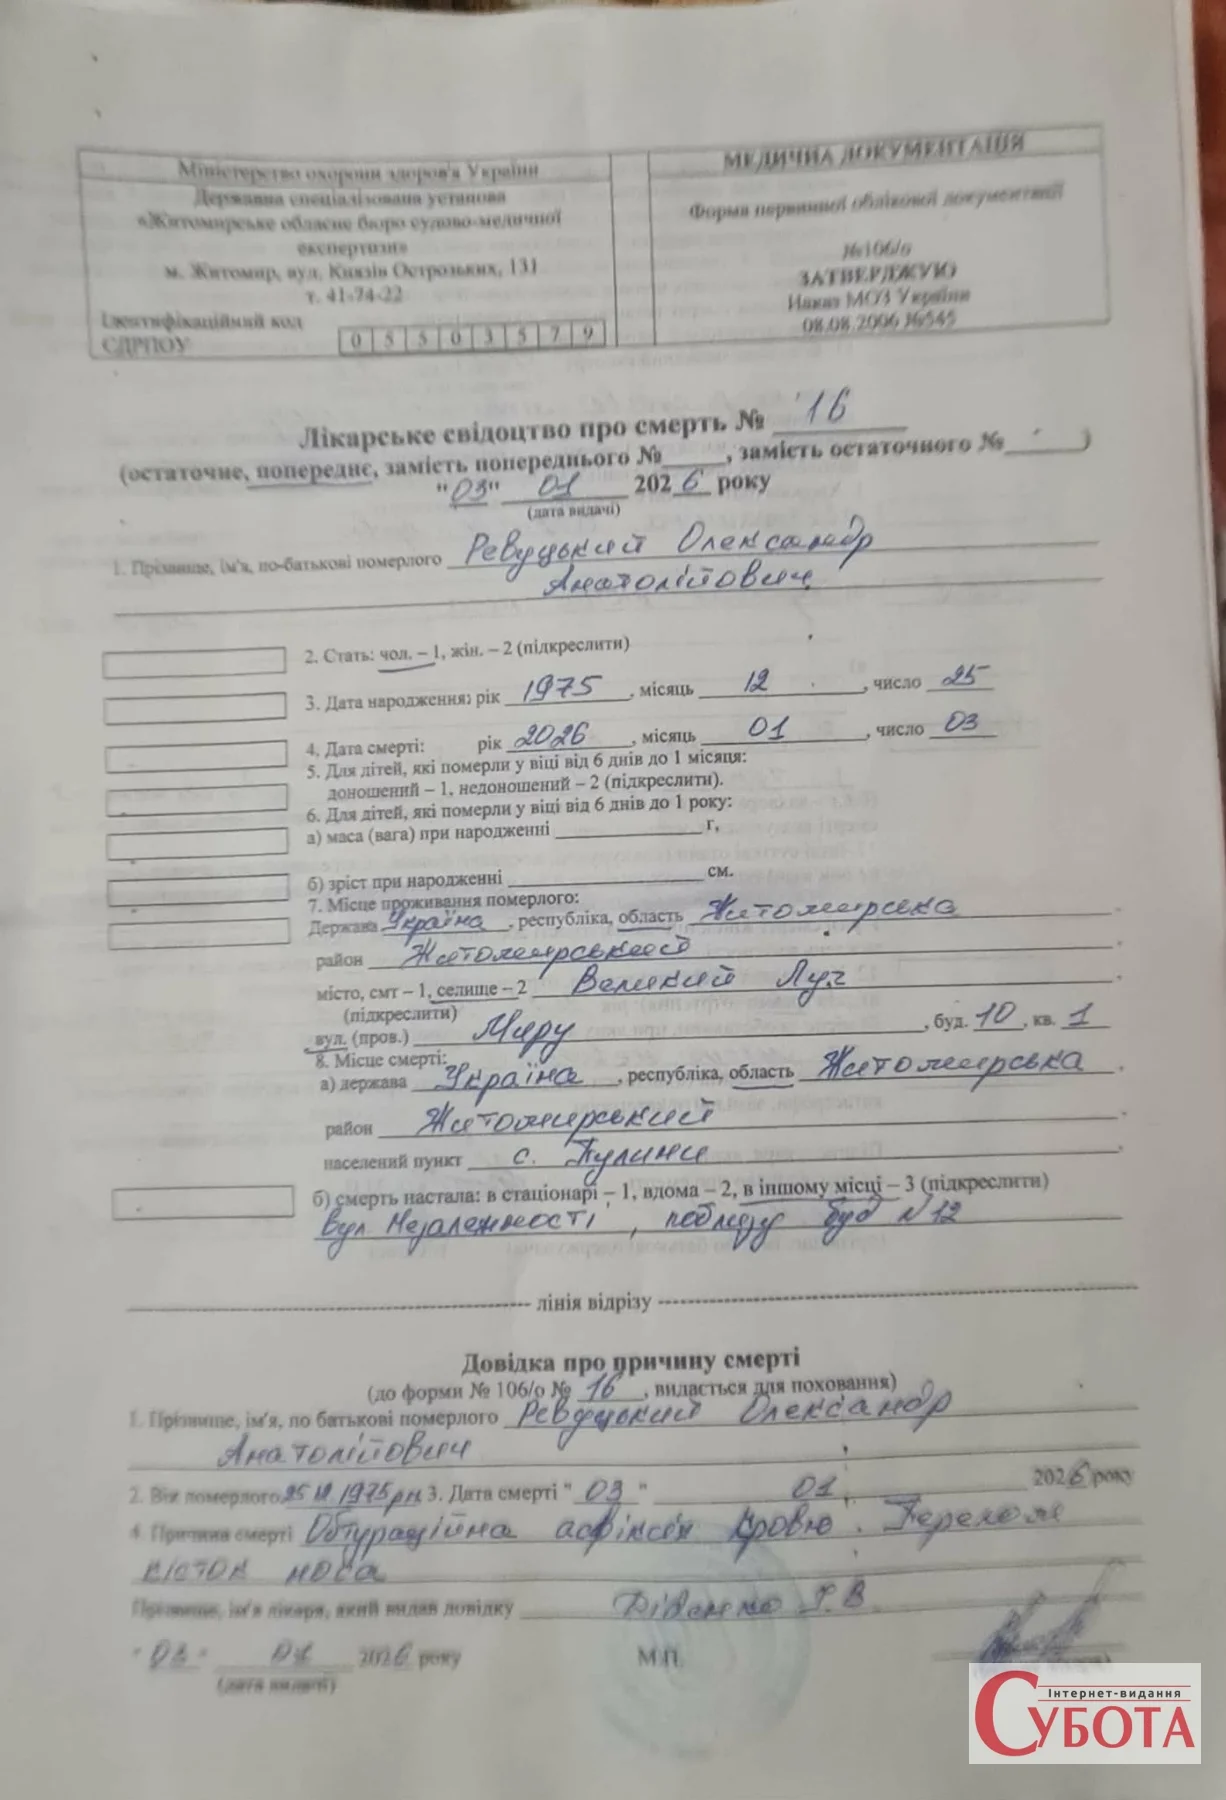 Міністерство охорони здоров'я України
Державна спеціалізована установа
«Житомирське обласне бюро судово-медичної
експертизи»
м. Житомир, вул. Князів Острозьких, 131
т. 41-74-22
Ідентифікаційний код
ЄДРПОУ 0 5 5 0 3 5 7 9
МЕДИЧНА ДОКУМЕНТАЦІЯ
Форма первинної облікової документації
№106/о
ЗАТВЕРДЖУЮ
Наказ МОЗ України
08.08.2006 №545
Лікарське свідоцтво про смерть № 16
(остаточне, попереднє, замість попереднього №____, замість остаточного №____)
"03" 01 2026 року
(дата видачі)
1. Прізвище, ім'я, по-батькові померлого Ревуцький Олександр
Анатолійович
2. Стать: чол. – 1, жін. – 2 (підкреслити)
3. Дата народження: рік 1975, місяць 12, число 25
4. Дата смерті: рік 2026, місяць 01, число 03
5. Для дітей, які померли у віці від 6 днів до 1 місяця:
доношений – 1, недоношений – 2 (підкреслити).
6. Для дітей, які померли у віці від 6 днів до 1 року:
а) маса (вага) при народженні ____ г,
б) зріст при народженні ____ см.
7. Місце проживання померлого:
Держава Україна, республіка, область Житомирська
район Житомирський
місто, смт – 1, селище – 2 Великий Луг
(підкреслити)
вул. (пров.) Миру, буд. 10, кв. 1
8. Місце смерті:
а) держава Україна, республіка, область Житомирська
район Житомирський
населений пункт с. Пулини
б) смерть настала: в стаціонарі – 1, вдома – 2, в іншому місці – 3 (підкреслити)
вул Незалежності, поблизу буд №12
лінія відрізу
Довідка про причину смерті
(до форми № 106/о № 16, видається для поховання)
1. Прізвище, ім'я, по батькові померлого Ревуцький Олександр
Анатолійович
2. Вік померлого 25.12.1975 рн 3. Дата смерті "03" 01 2026 року
4. Причина смерті Обтураційна асфіксія кров'ю. Перелом
кісток носа
Прізвище, ім'я лікаря, який видав довідку
"03" 01 2026 року М.П.
(дата видачі)
Інтернет-видання
СУБОТА